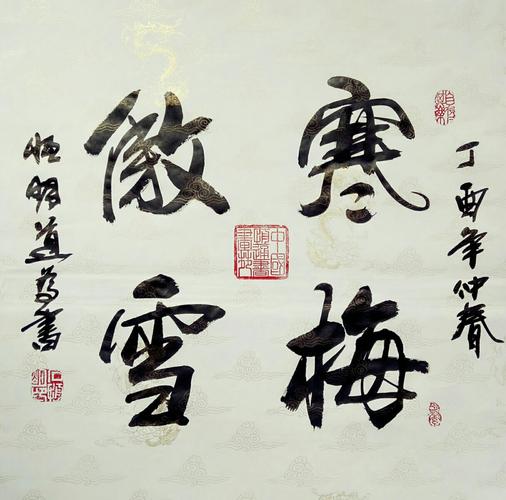 丁酉年仲春
寒梅
傲雪
恒明道為書